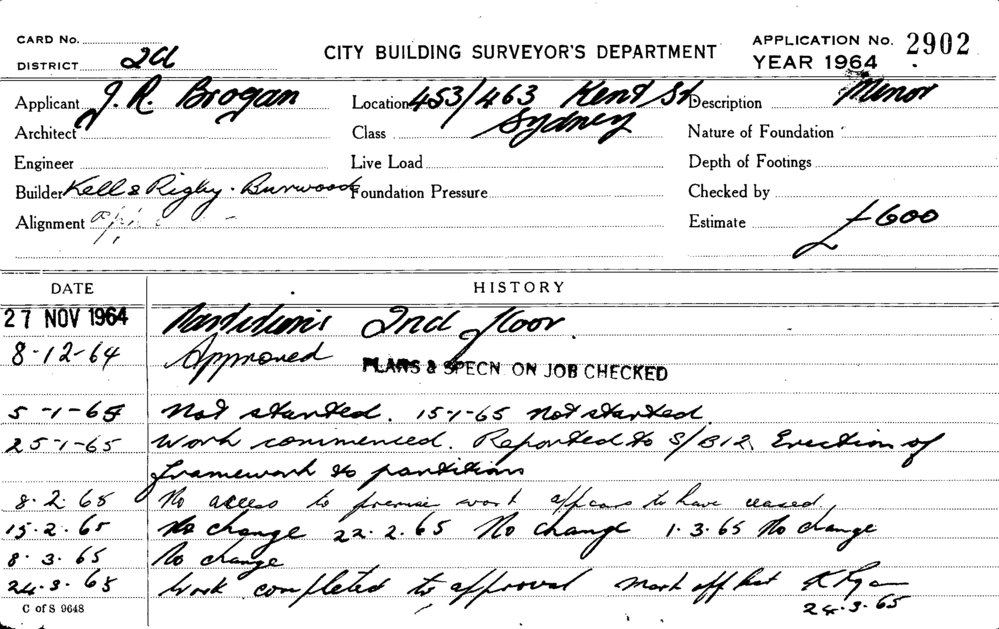 CARD No.
DISTRICT 2d
CITY BUILDING SURVEYOR'S DEPARTMENT
APPLICATION No. 2902
YEAR 1964
Applicant J. R. Brogan
Location 453/463 Kent St
Sydney
Description Minor
Architect
Class
Nature of Foundation
Engineer
Live Load
Depth of Footings
Builder Kell & Rigby. Burwood
Foundation Pressure
Checked by
Alignment
Estimate £600
DATE HISTORY
27 NOV 1964 Partitions 2nd floor
8-12-64 Approved PLANS & SPECN ON JOB CHECKED
5-1-65 Not started. 15-1-65 Not started
25-1-65 Work commenced. Reported to S/B12. Erection of
framework to partitions
8.2.65 No access to premise work appears to have ceased.
15.2.65 No change 22.2.65 No change 1.3.65 No change
8.3.65 No change
24.3.65 Work completed to approval mark off K Ryan
24.3.65
C of S 9648